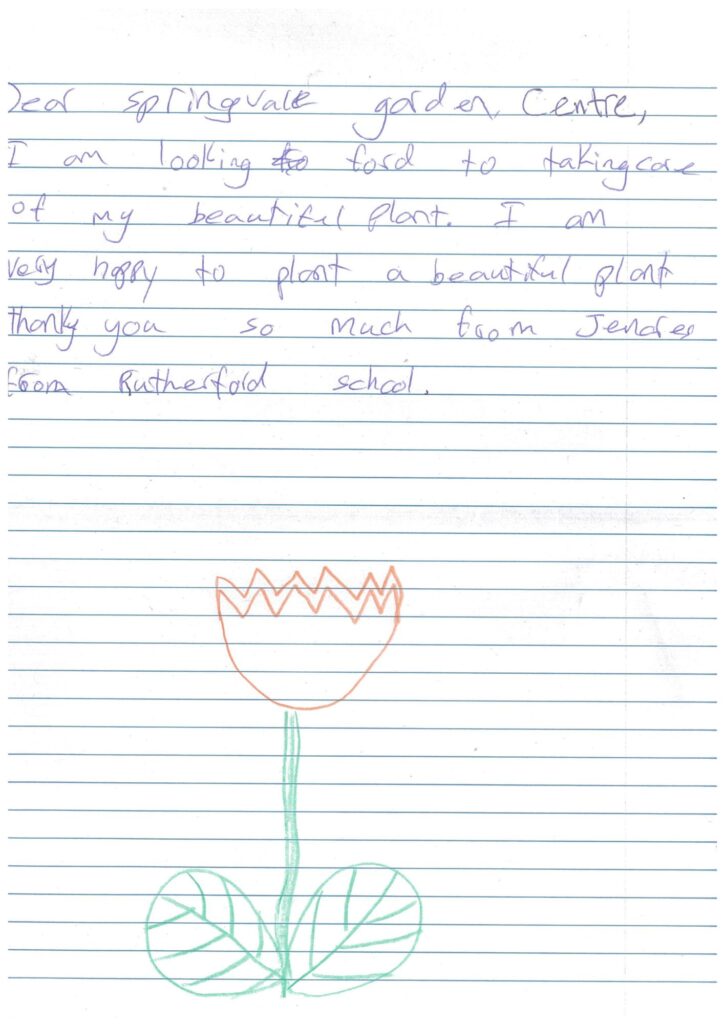 Dear springvale garden Centre,
I am looking to ford to takingcare
of my beautiful plant. I am
very happy to plant a beautiful plant
thank you so much from
from Rutherfold school.